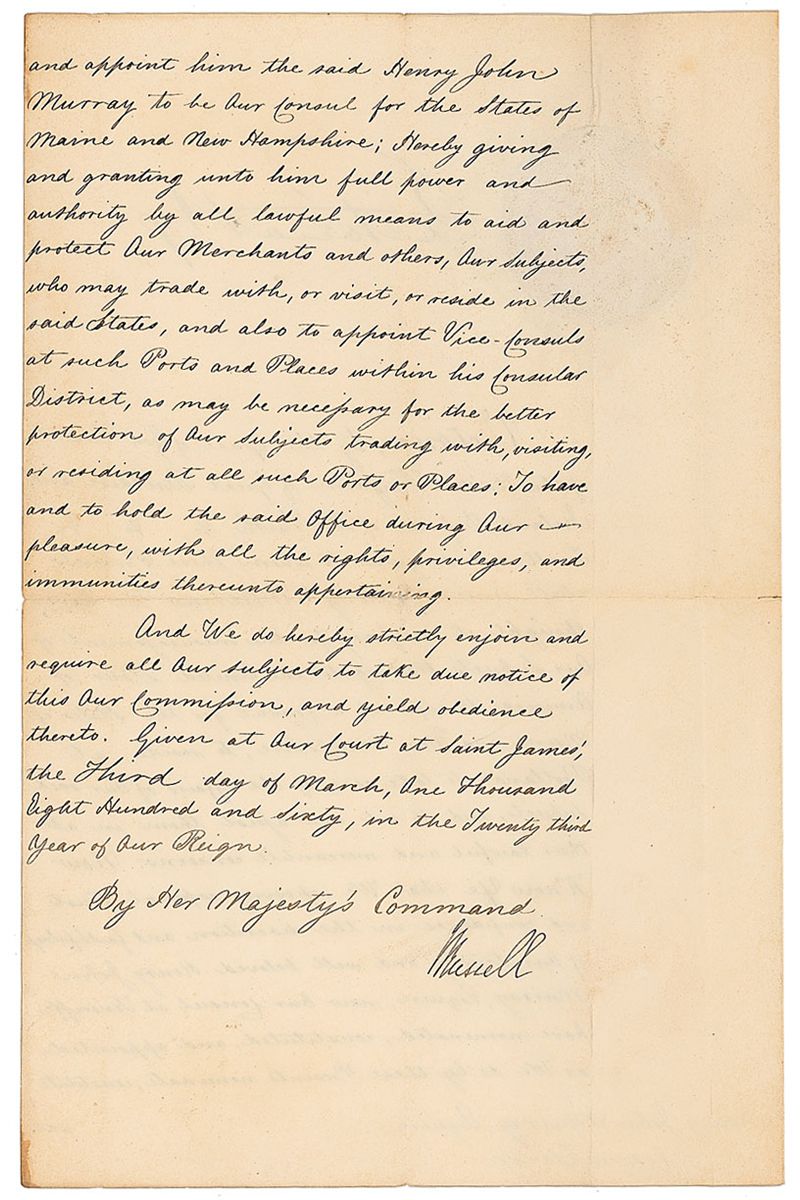 and appoint him the said Henry John
Murray to be Our Consul for the States of
Maine and New Hampshire; Hereby giving
and granting unto him full power and
authority by all lawful means to aid and
protect Our Merchants and others, Our Subjects,
who may trade with, or visit, or reside in the
said States, and also to appoint Vice-Consuls
at such Ports and Places within his Consular
District, as may be necessary for the better
protection of Our Subjects trading with, visiting,
or residing at all such Ports or Places: To have
and to hold the said Office during Our
pleasure, with all the rights, privileges, and
immunities thereunto appertaining.
And We do hereby strictly enjoin and
require all Our Subjects to take due notice of
this Our Commission, and yield obedience
thereto. Given at Our Court at Saint James',
the Third day of March, One Thousand
Eight Hundred and Sixty, in the Twenty third
Year of Our Reign.
By Her Majesty's Command
JRussell